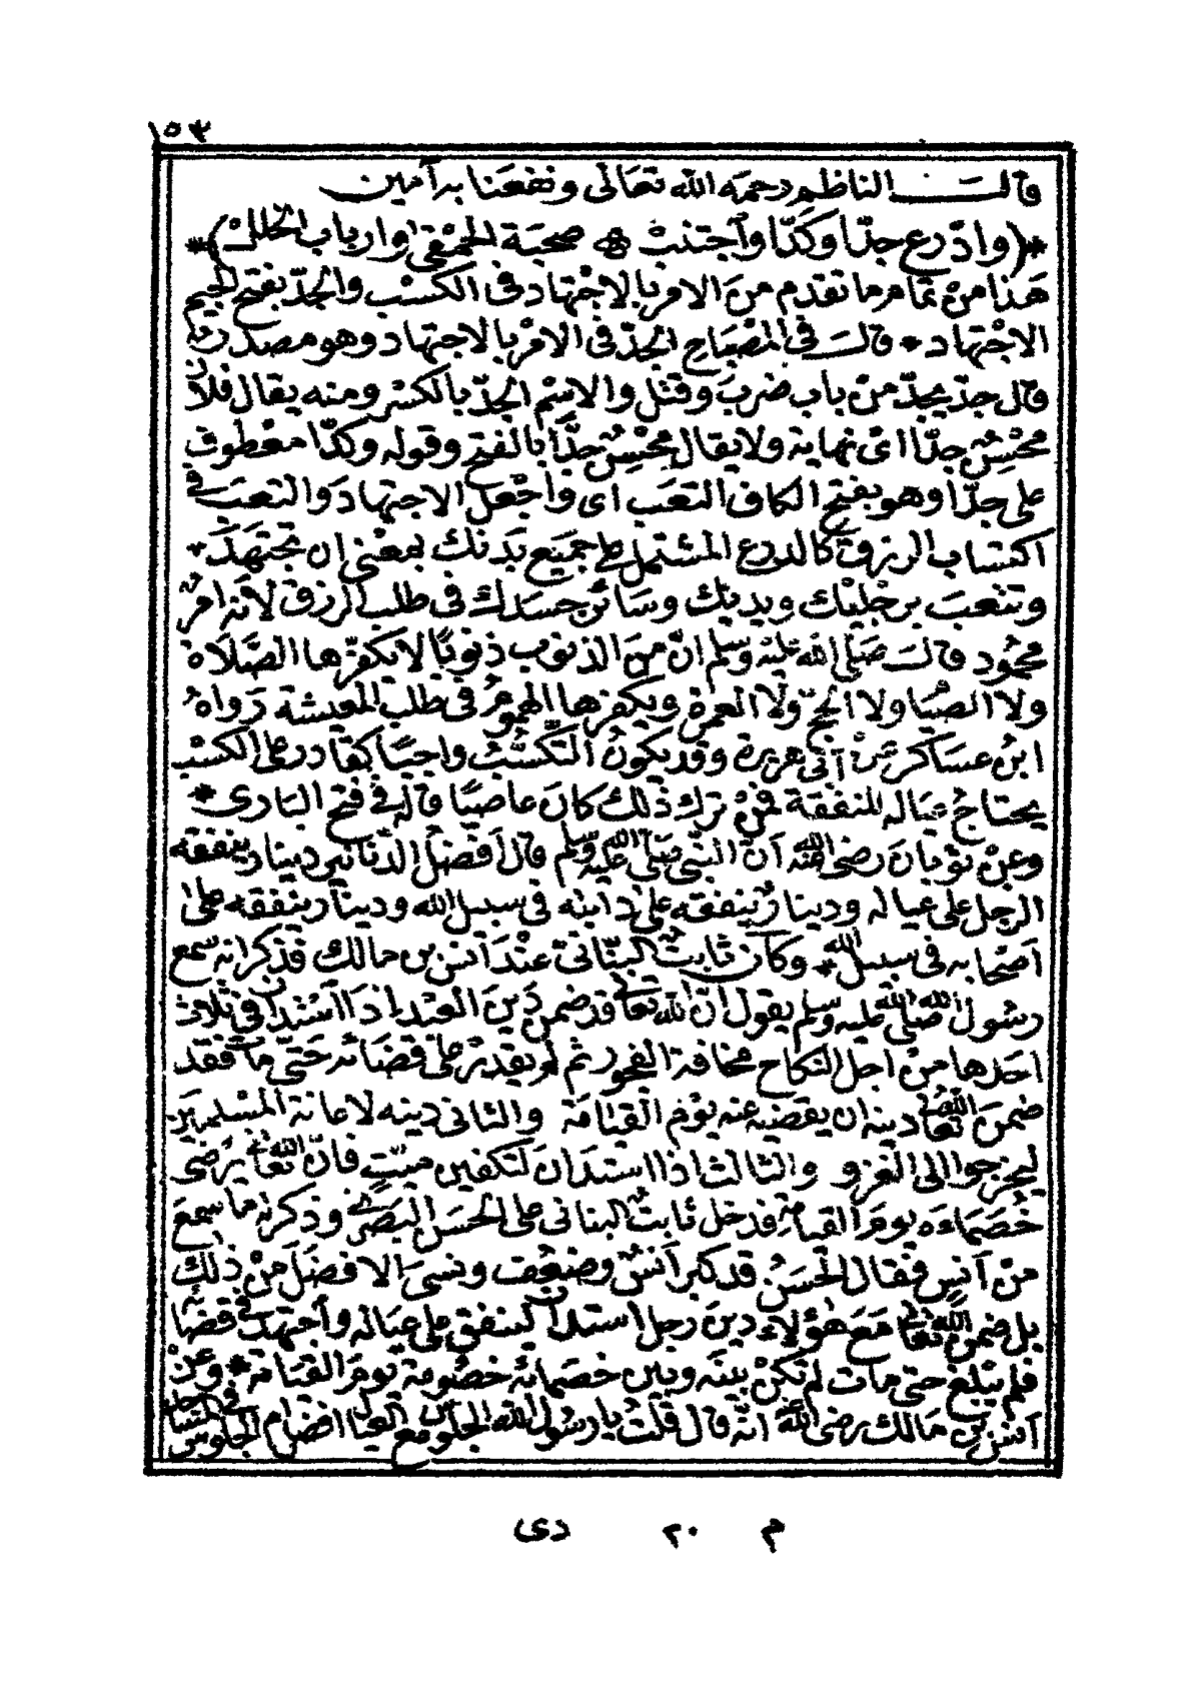 ١٥٣
قالـــ الناظم رحمه الله تعالى ونفعنا به آمين
*(وادّرع جدّا وكدّا وٱجتنب ۞ صحبة الحمقى وارباب الخلل)*
هذا من تمام ما تقدم من الامر بالاجتهاد فى الكسب والجدّ بفتح الجيم
الاجتهاد * قالـ فى المصباح الجدّ فى الامر بالاجتهاد وهو مصدر
قال جدّ يجدّ من باب ضرب وقتل والاسم الجدّ بالكسر ومنه يقال فلان
محسن جدّا اى نهاية ولا يقال محسن جدّا بالفتح وقوله وكدّا معطوف
على جدّا وهو بفتح الكاف التعب اى واجعل الاجتهاد والتعب فى
اكتساب الرزق كالدرع المشتمل على جميع بدنك بمعنى ان تجتهد *
وتتعب برجليك ويديك وسائر جسدك فى طلب الرزق لانه امر
محمود قالـ صلى الله عليه وسلم انّ من الذنوب ذنوبًا لا يكفرها الصلاة
ولا الصيا ولا الحجّ ولا العمرة ويكفرها الهموم فى طلب المعيشة رواه
ابن عساكر عن ابى هريرة وقد يكون التكسّب واجبًا كقادر على الكسب
يحتاج عياله للنفقة فمن ترك ذلك كان عاصيًا قاله فى فتح البارى *
وعن ثوبان رضى الله عنه أن النبى صلى الله عليه وسلم قال أفضل الدنانير دينار ينفقه
الرجل على عياله ودينار ينفقه على دابته فى سبيل الله ودينار ينفقه على
أصحابه فى سبيل الله * وكان ثابت البنانى عند أنس بن مالك فذكر انه سمع
رسول الله صلى الله عليه وسلم يقول انّ الله تعالى قد ضمن دين العبد اذا استدان فى ثلاث
احدها من اجل النكاح مخافة الفجور ثم لم يقدر على قضائه حتى مات فقد
ضمن الله تعالى دينه ان يقضيه عنه يوم القيامة والثانى دينه لاعانة المسلمين
ليخرجوا الى الغزو والثالث اذا استدان لتكفين ميّت فانّ الله تعالى يرضى
خصماءه يوم القيامة فدخل ثابت البنانى على الحسن البصرى وذكر له ما سمع
من أنس فقال الحسن قد كبر أنس وضعف ونسى الافضل من ذلك
بل ضمن الله تعالى مع هؤلاء دين رجل استدان لينفق على عياله وأجتهد فى قضائه
فلم يبلغ حتى مات لم تكن بينه وبين خصمائه خصومة يوم القيامة * وعن
أنس بن مالك رضى الله عنه انه قال قلت يا رسول الله الجلوس مع العيال افضل ام الجلوس فى المساجد
م ٢٠ دى